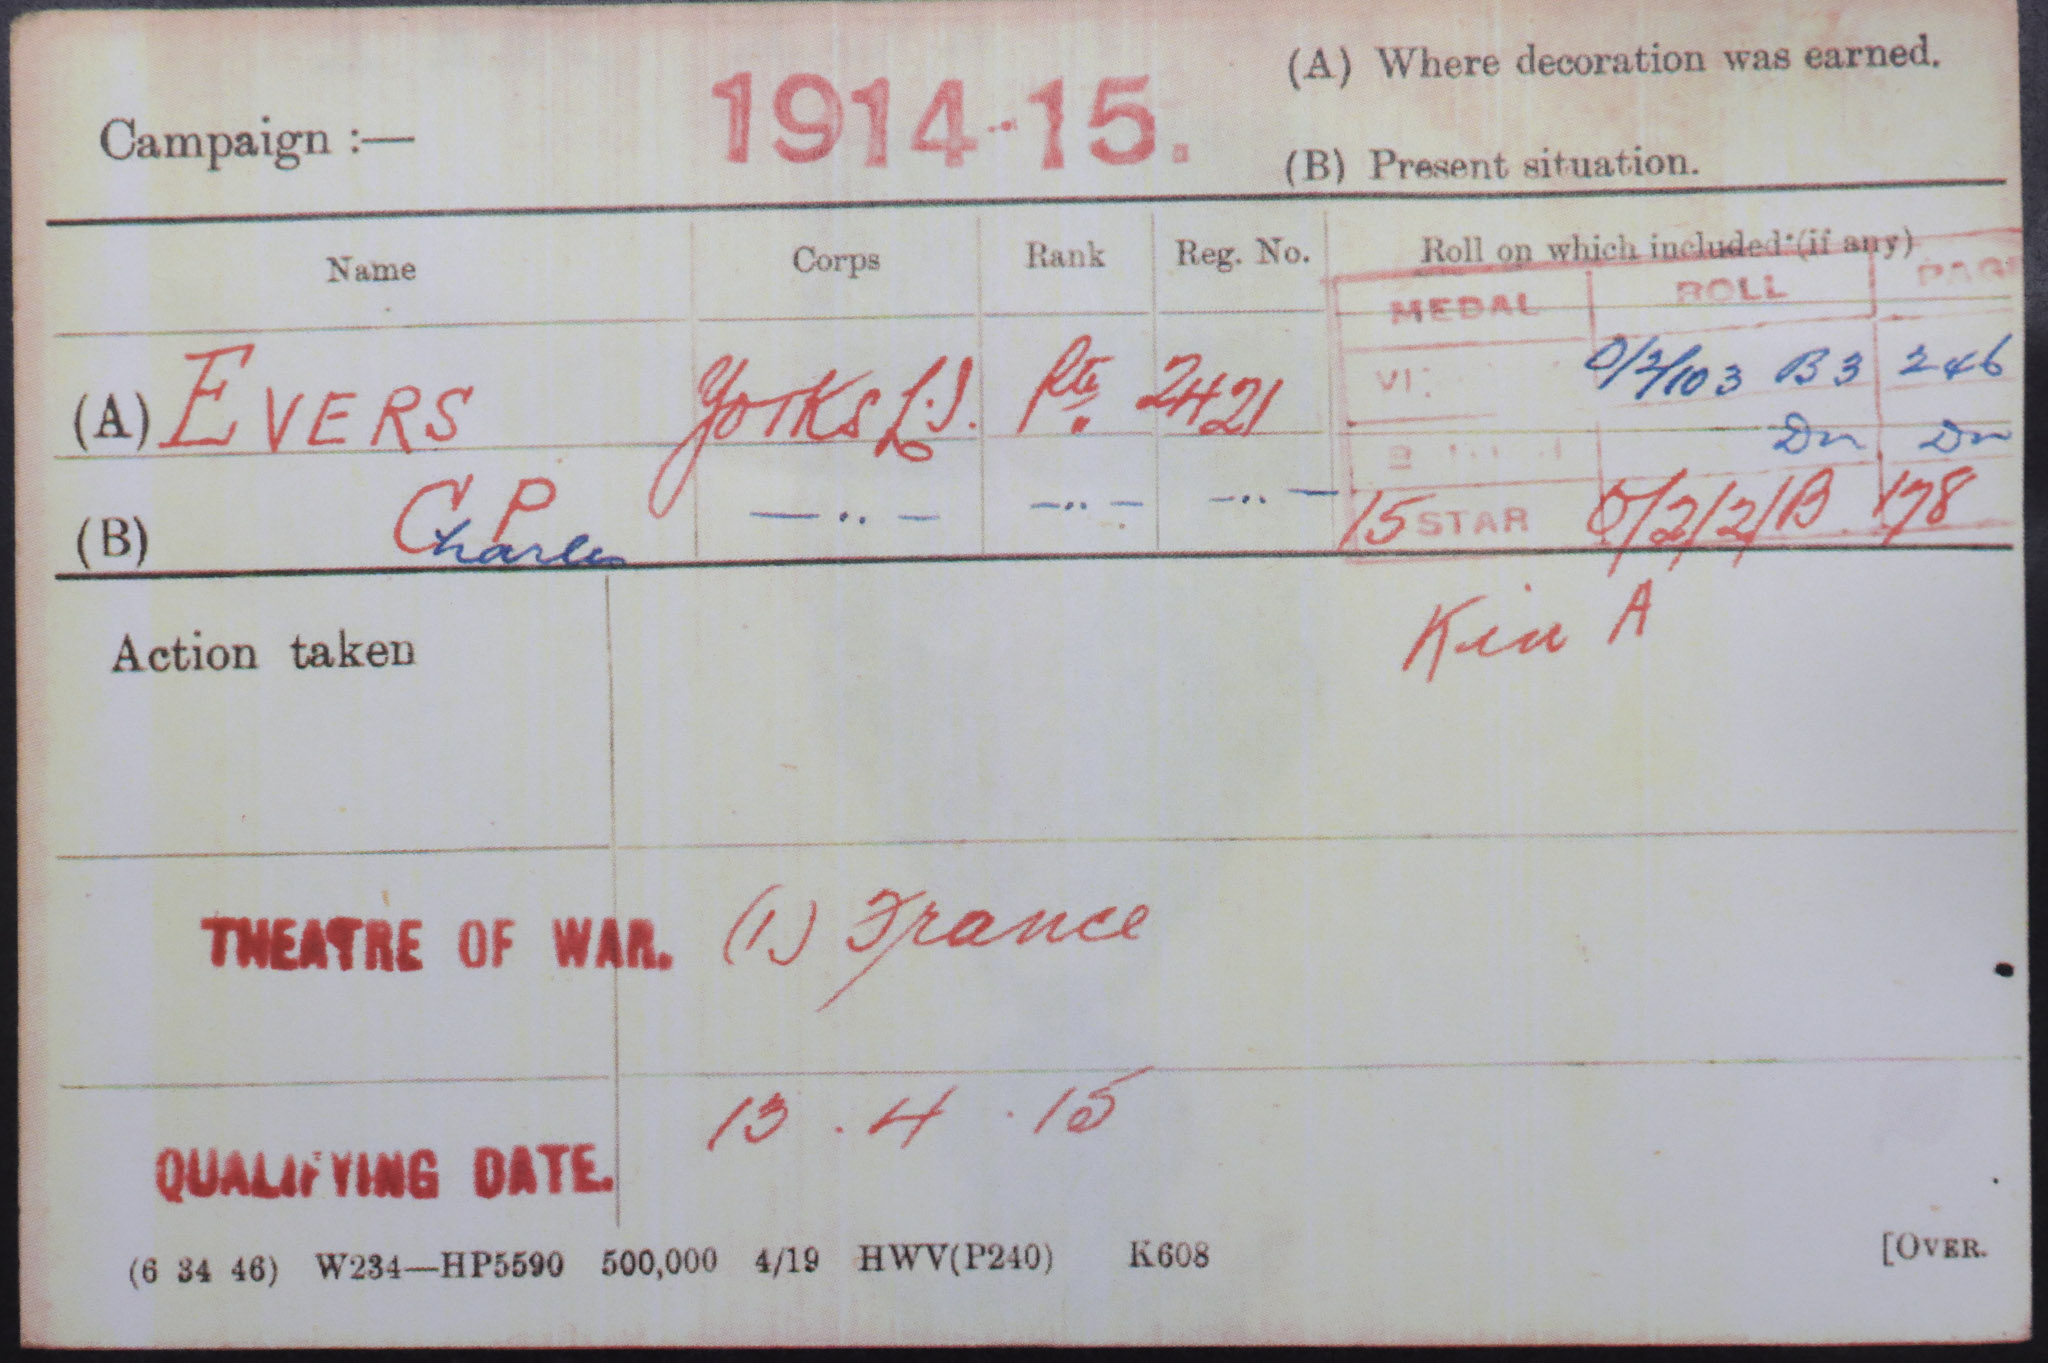 (A) Where decoration was earned.
Campaign :— 1914-15.
(B) Present situation.
Name Corps Rank Reg. No. Roll on which included (if any)
MEDAL ROLL PAGE
(A) EVERS Yorks L.I. Pte. 2421 O/2/103 B3 246
Do Do
(B) C P — .. — — .. — — .. — 15 STAR O/2/2/B 178
Charles
Action taken
K in A
THEATRE OF WAR. (1) France
QUALIFYING DATE. 13 . 4 . 15
(6 34 46) W234—HP5590 500,000 4/19 HWV(P240) K608 [OVER.